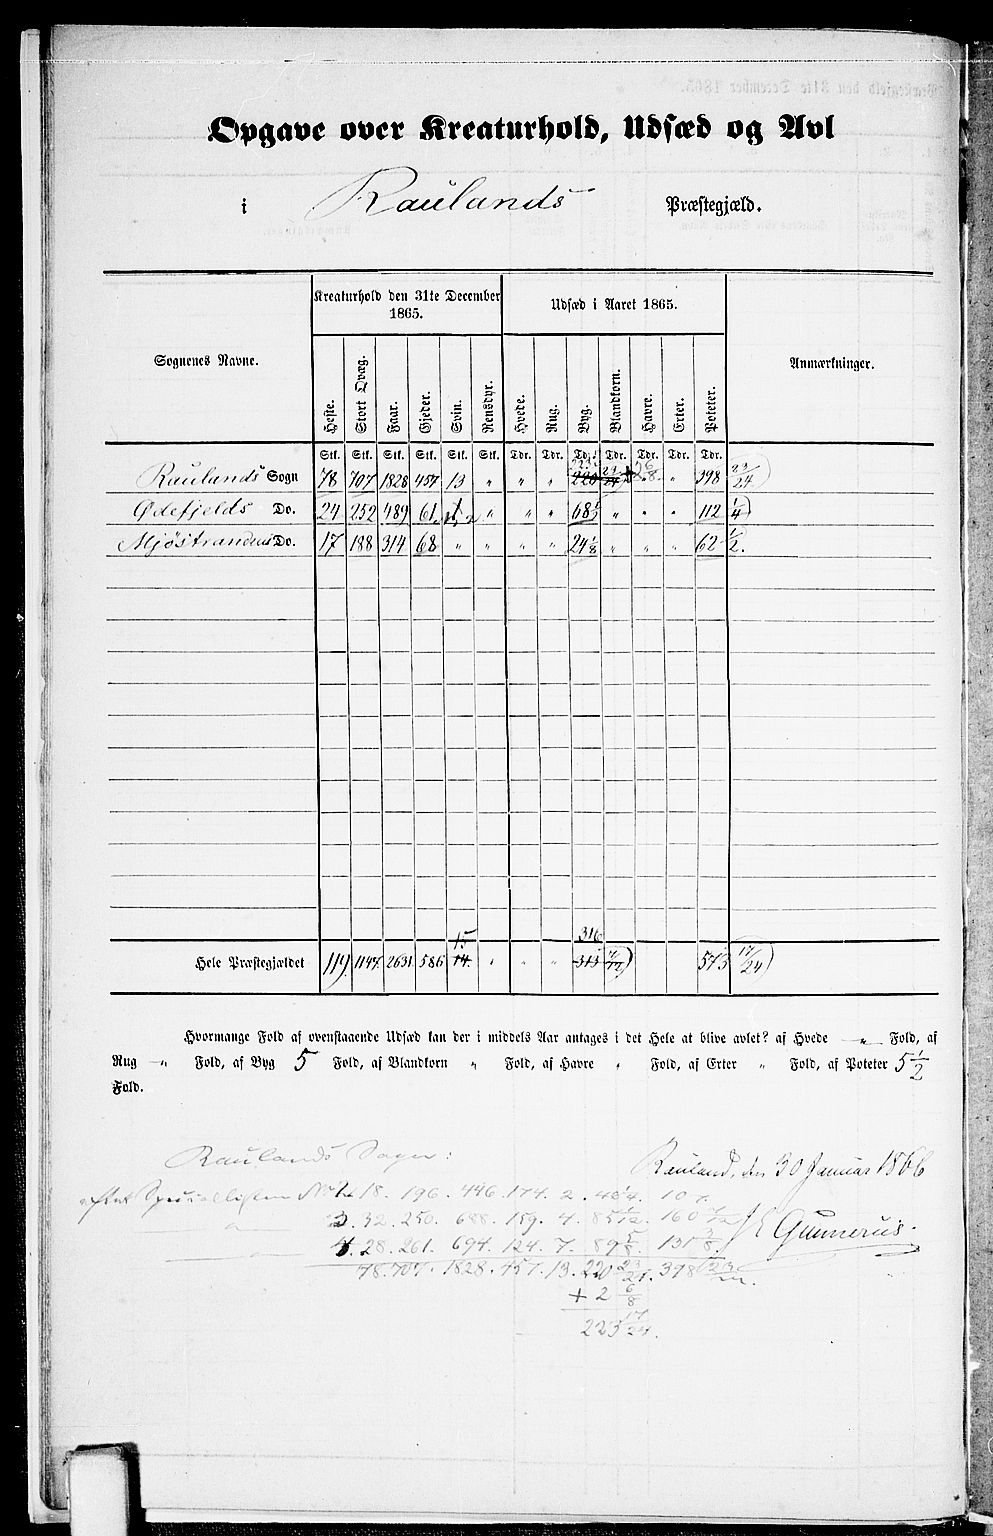 Opgave over Kreaturhold, Udsæd og Avl
i Raulands Præstegjæld.
Sognenes Navne. Kreaturhold den 31te December 1865. Udsæd i Aaret 1865. Anmærkninger.
Heste. Stort Qvæg. Faar. Gjeder. Svin. Rensdyr. Hvede. Rug. Byg. Blandkorn. Havre. Erter. Poteter.
Stk. Stk. Stk. Stk. Stk. Stk. Tdr. Tdr. Tdr. Tdr. Tdr. Tdr. Tdr.
Raulands Sogn 78 707 1828 457 13 " " " 220 23/24 " " 398 23/24
Ødefjelds Do. 24 252 489 61 " " " 68 " " " 112 1/4
Mjøstrandens Do. 17 188 314 68 " " " " 24 1/8 " " " 62 1/2.
15 316
Hele Præstegjældet 119. 1147. 2631 586 14. " " " 313 7/12 573 17/24
Hvormange Fold af ovenstaaende Udsæd kan der i middels Aar antages i det Hele at blive avlet? af Hvede " Fold, af
Rug " Fold, af Byg 5 Fold, af Blandkorn " Fold, af Havre " Fold, af Erter " Fold, af Poteter 5 1/2
Fold.
Raulands Sogn:
Rauland, den 30 Januar 1866
efter Speciallisten No 18. 196. 446. 174. 2. 107.
3. 32. 250. 688. 159. 4. 85 1/12. 160 7/12
Gunnerus.
4. 28. 261. 694. 124. 7. 89 5/8. 131 3/8
78. 707. 1828. 457. 13. 220 23/24. 398 23/24.
+ 2 6/8
223 17/24.